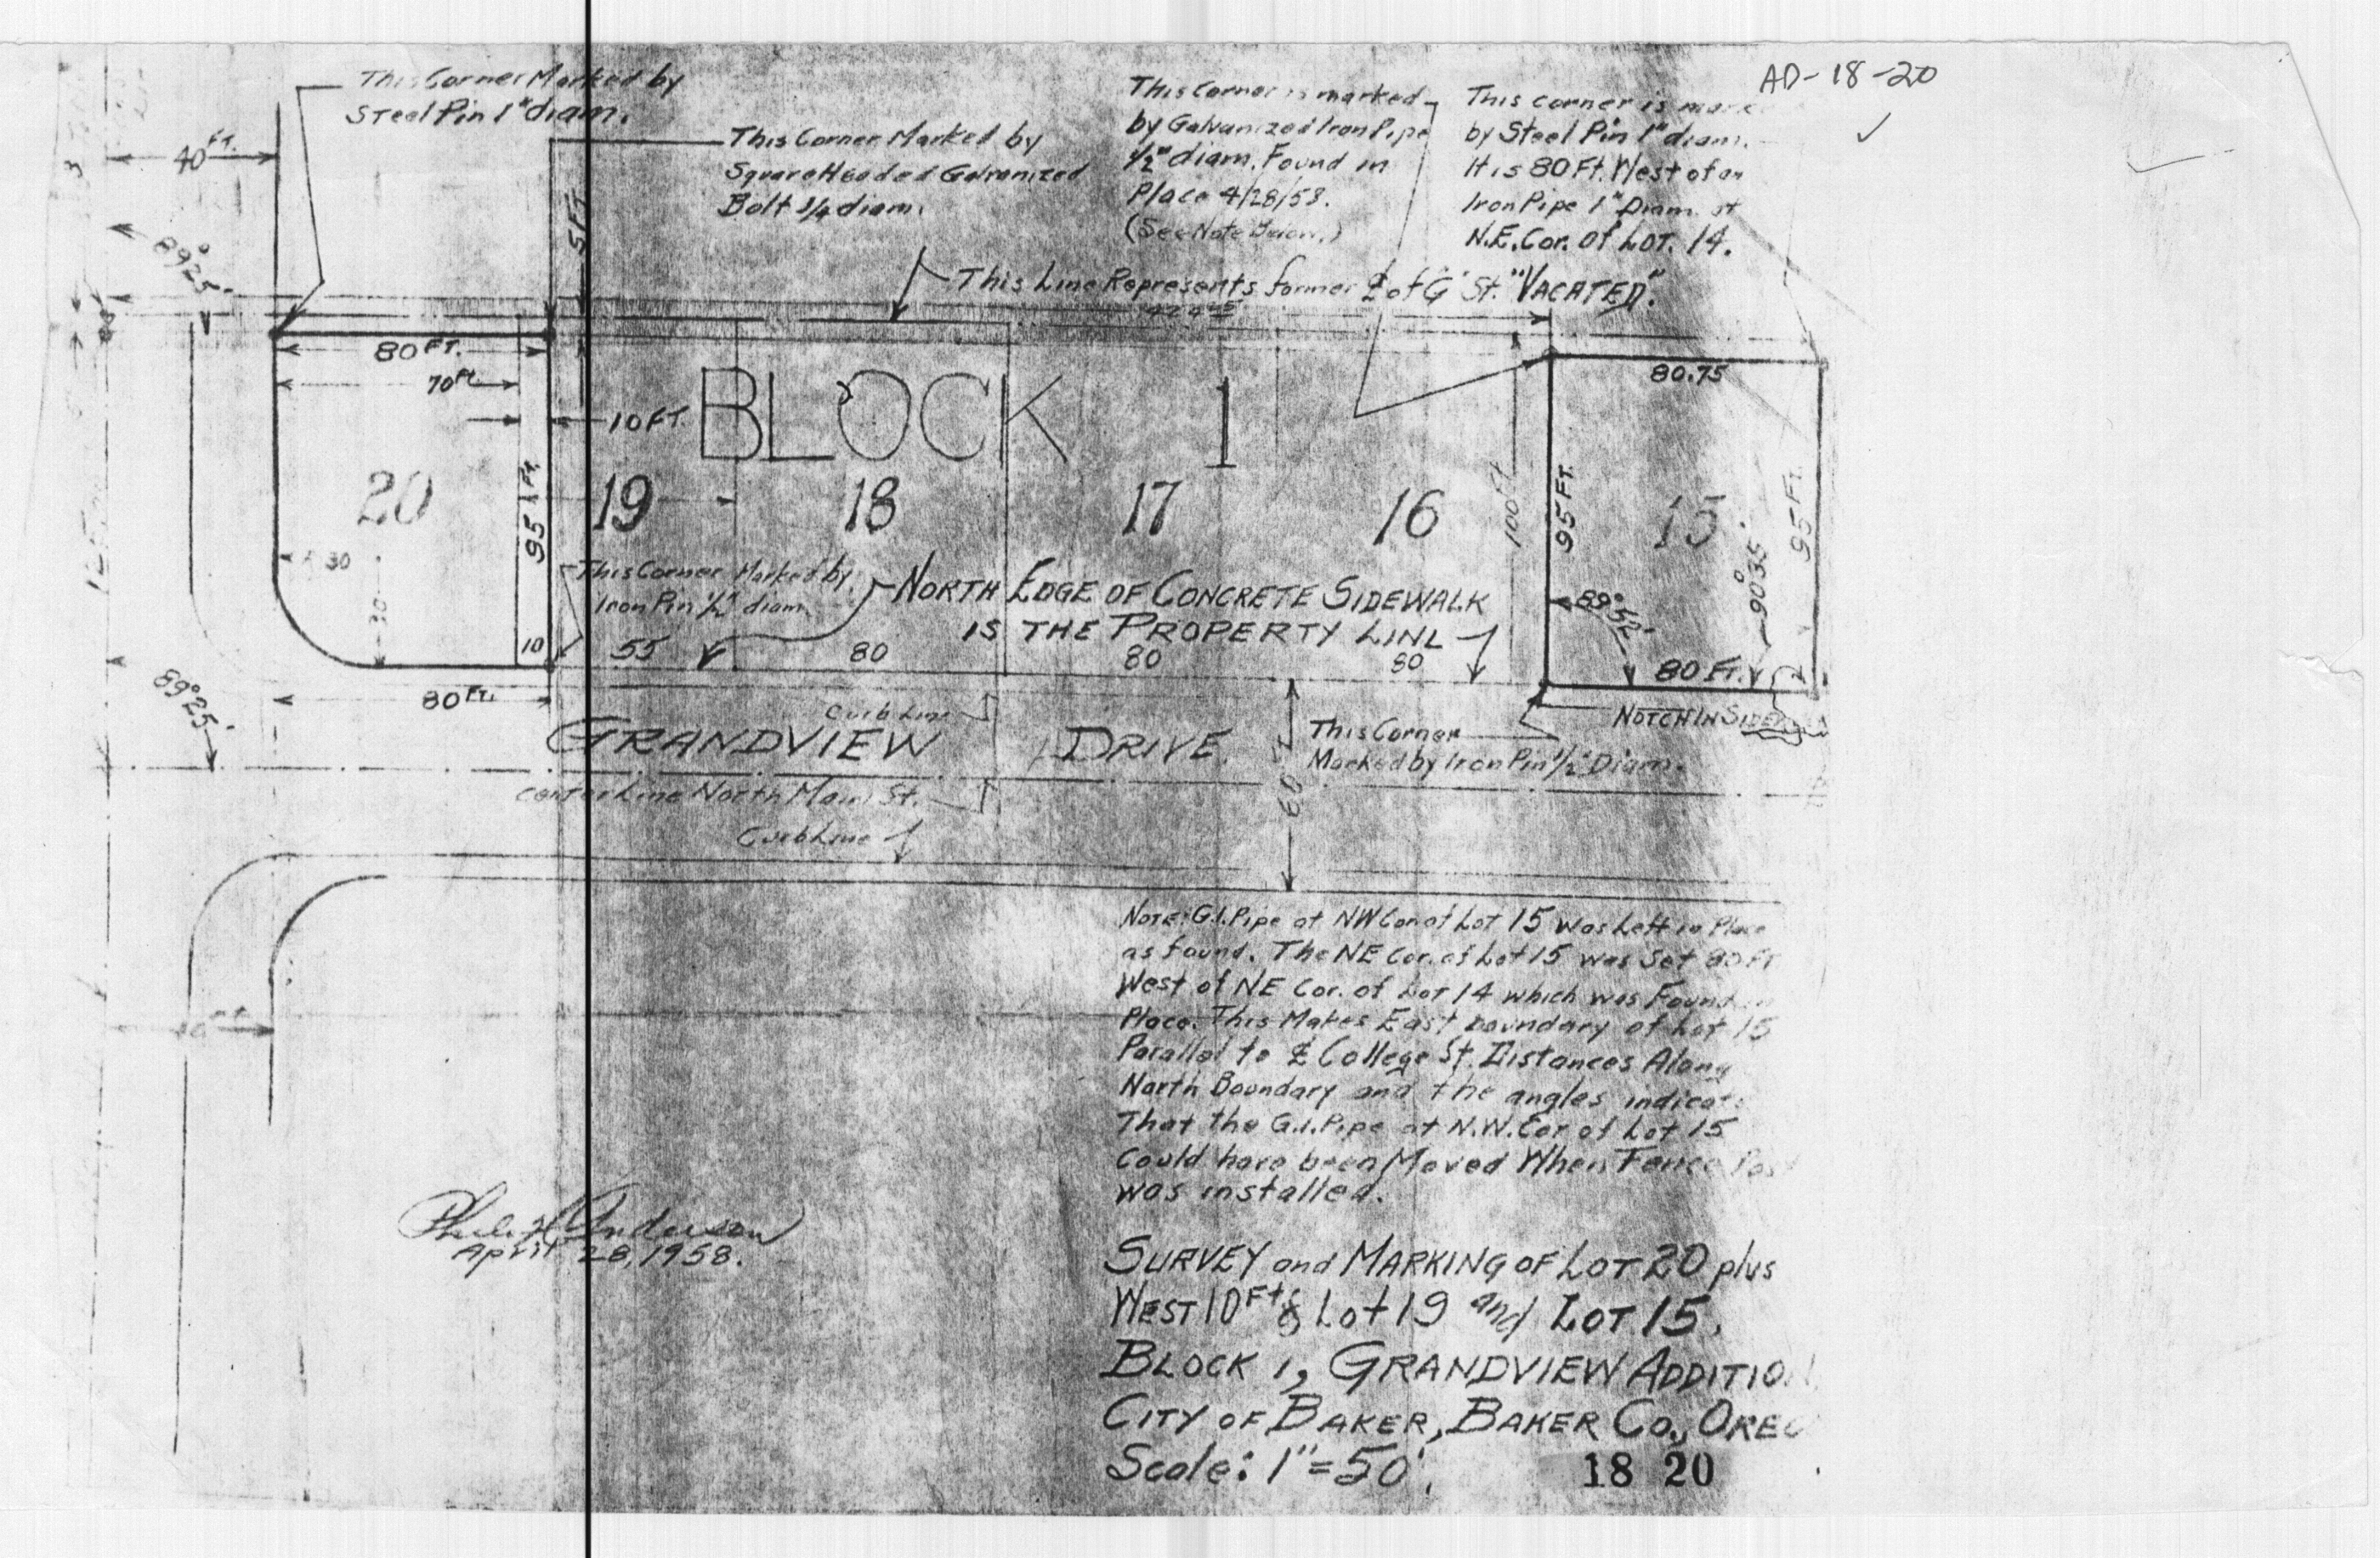 AD-18-20
This Corner Marked by
Steel Pin 1" diam.
This Corner Marked by
Square Headed Galvanized
Bolt 3/4 diam.
This Corner is marked
by Galvanized Iron Pipe
1/2" diam. Found in
Place 4/28/58.
(See Note Below.)
This corner is
by Steel Pin 1" diam.
It is 80 Ft. West of an
Iron Pipe 1" Diam. at
N.E. Cor. of LOT. 14.
40 FT.
5 FT
89°25'
This Line Represents former ℄ of G St. "VACATED".
80 FT.
70 Ft.
10 FT.
BLOCK 1
80.75
20
19
18
17
16
15
95 Ft.
100 Ft
95 FT.
95 FT.
30
30
10
This Corner Marked by
Iron Pin 1/2" diam
NORTH EDGE OF CONCRETE SIDEWALK
IS THE PROPERTY LINE
55
80
80
80
89°52'
90°35'
80 FT.
89°25'
80 FT.
Curb Line
GRANDVIEW DRIVE
Center Line North Main St.
Curb Line
60
This Corner
Marked by Iron Pin 1/2" Diam.
NOTCH IN
NOTE: G.I. Pipe at NW Cor of Lot 15 was Left in Place
as found. The NE Cor. of Lot 15 was Set 80 Ft
West of NE Cor. of Lot 14 which was Found in
Place. This Makes East boundary of Lot 15
Parallel to ℄ College St. Distances Along
North Boundary and the angles indicat
That the G.I. Pipe at N.W. Cor of Lot 15
Could have been Moved When Fence Pos
was installed.
April 28, 1958.
SURVEY and MARKING OF LOT 20 plus
WEST 10 Ft of Lot 19 and LOT 15,
BLOCK 1, GRANDVIEW ADDITION
CITY OF BAKER, BAKER CO., OREG
Scale: 1" = 50'.
18 20